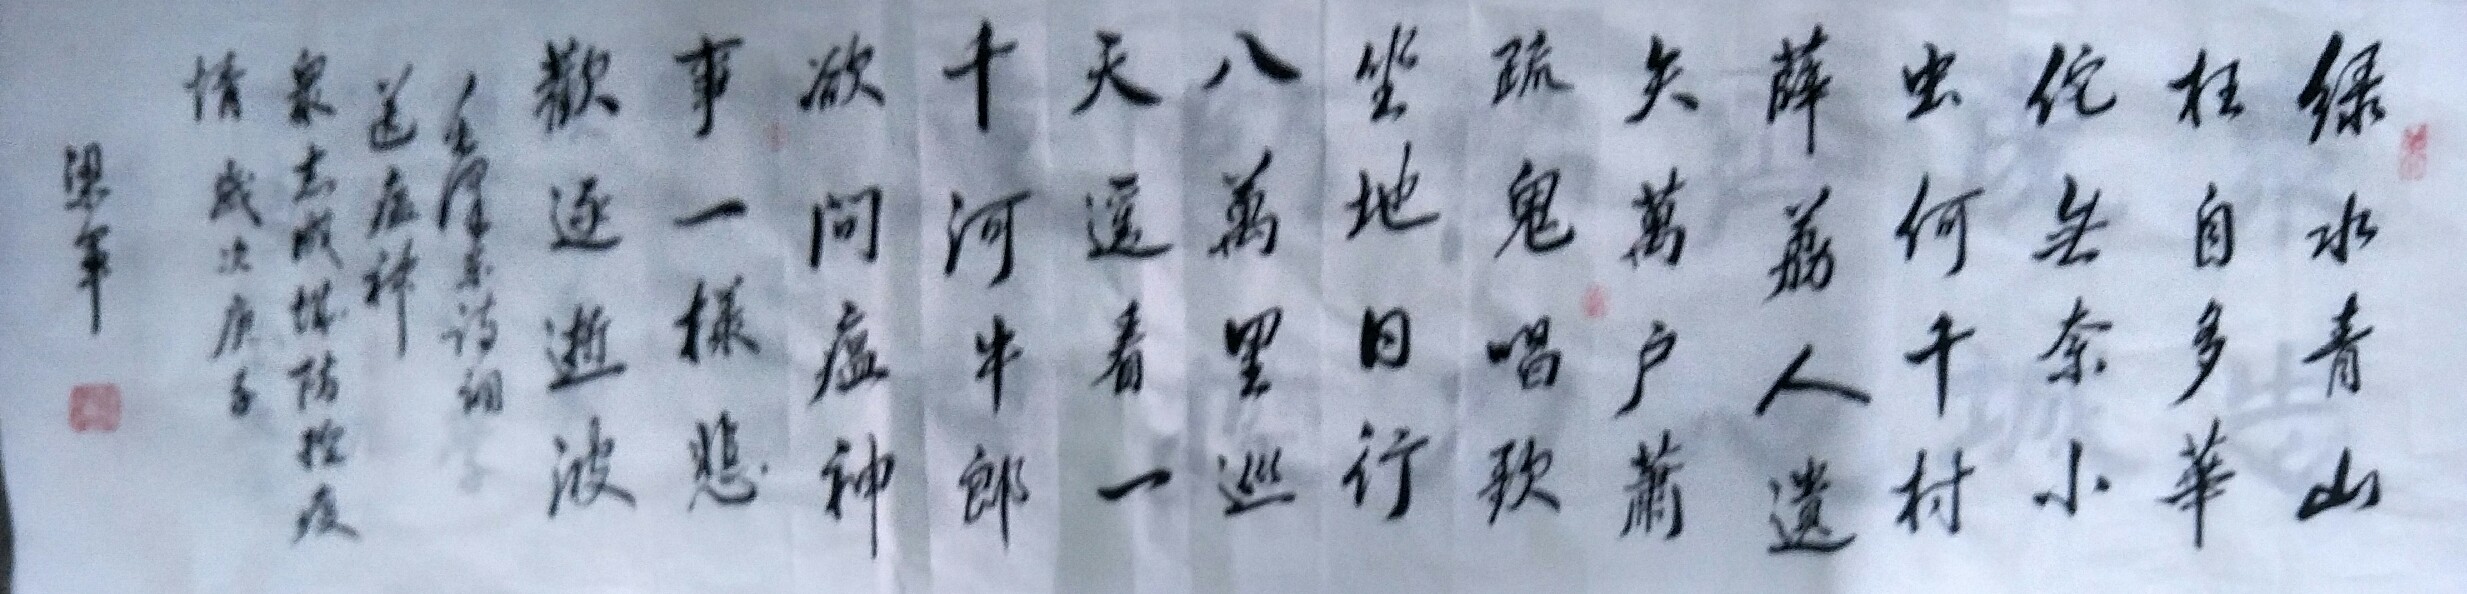 绿水青山
枉自多華
佗無奈小
虫何千村
薜荔人遗
矢萬户萧
疏鬼唱歌
坐地日行
八萬里巡
天遥看一
千河牛郎
欲问瘟神
事一樣悲
歡逐逝波
毛泽东诗词
送瘟神
衆志成城防控疫
情 歲次庚子